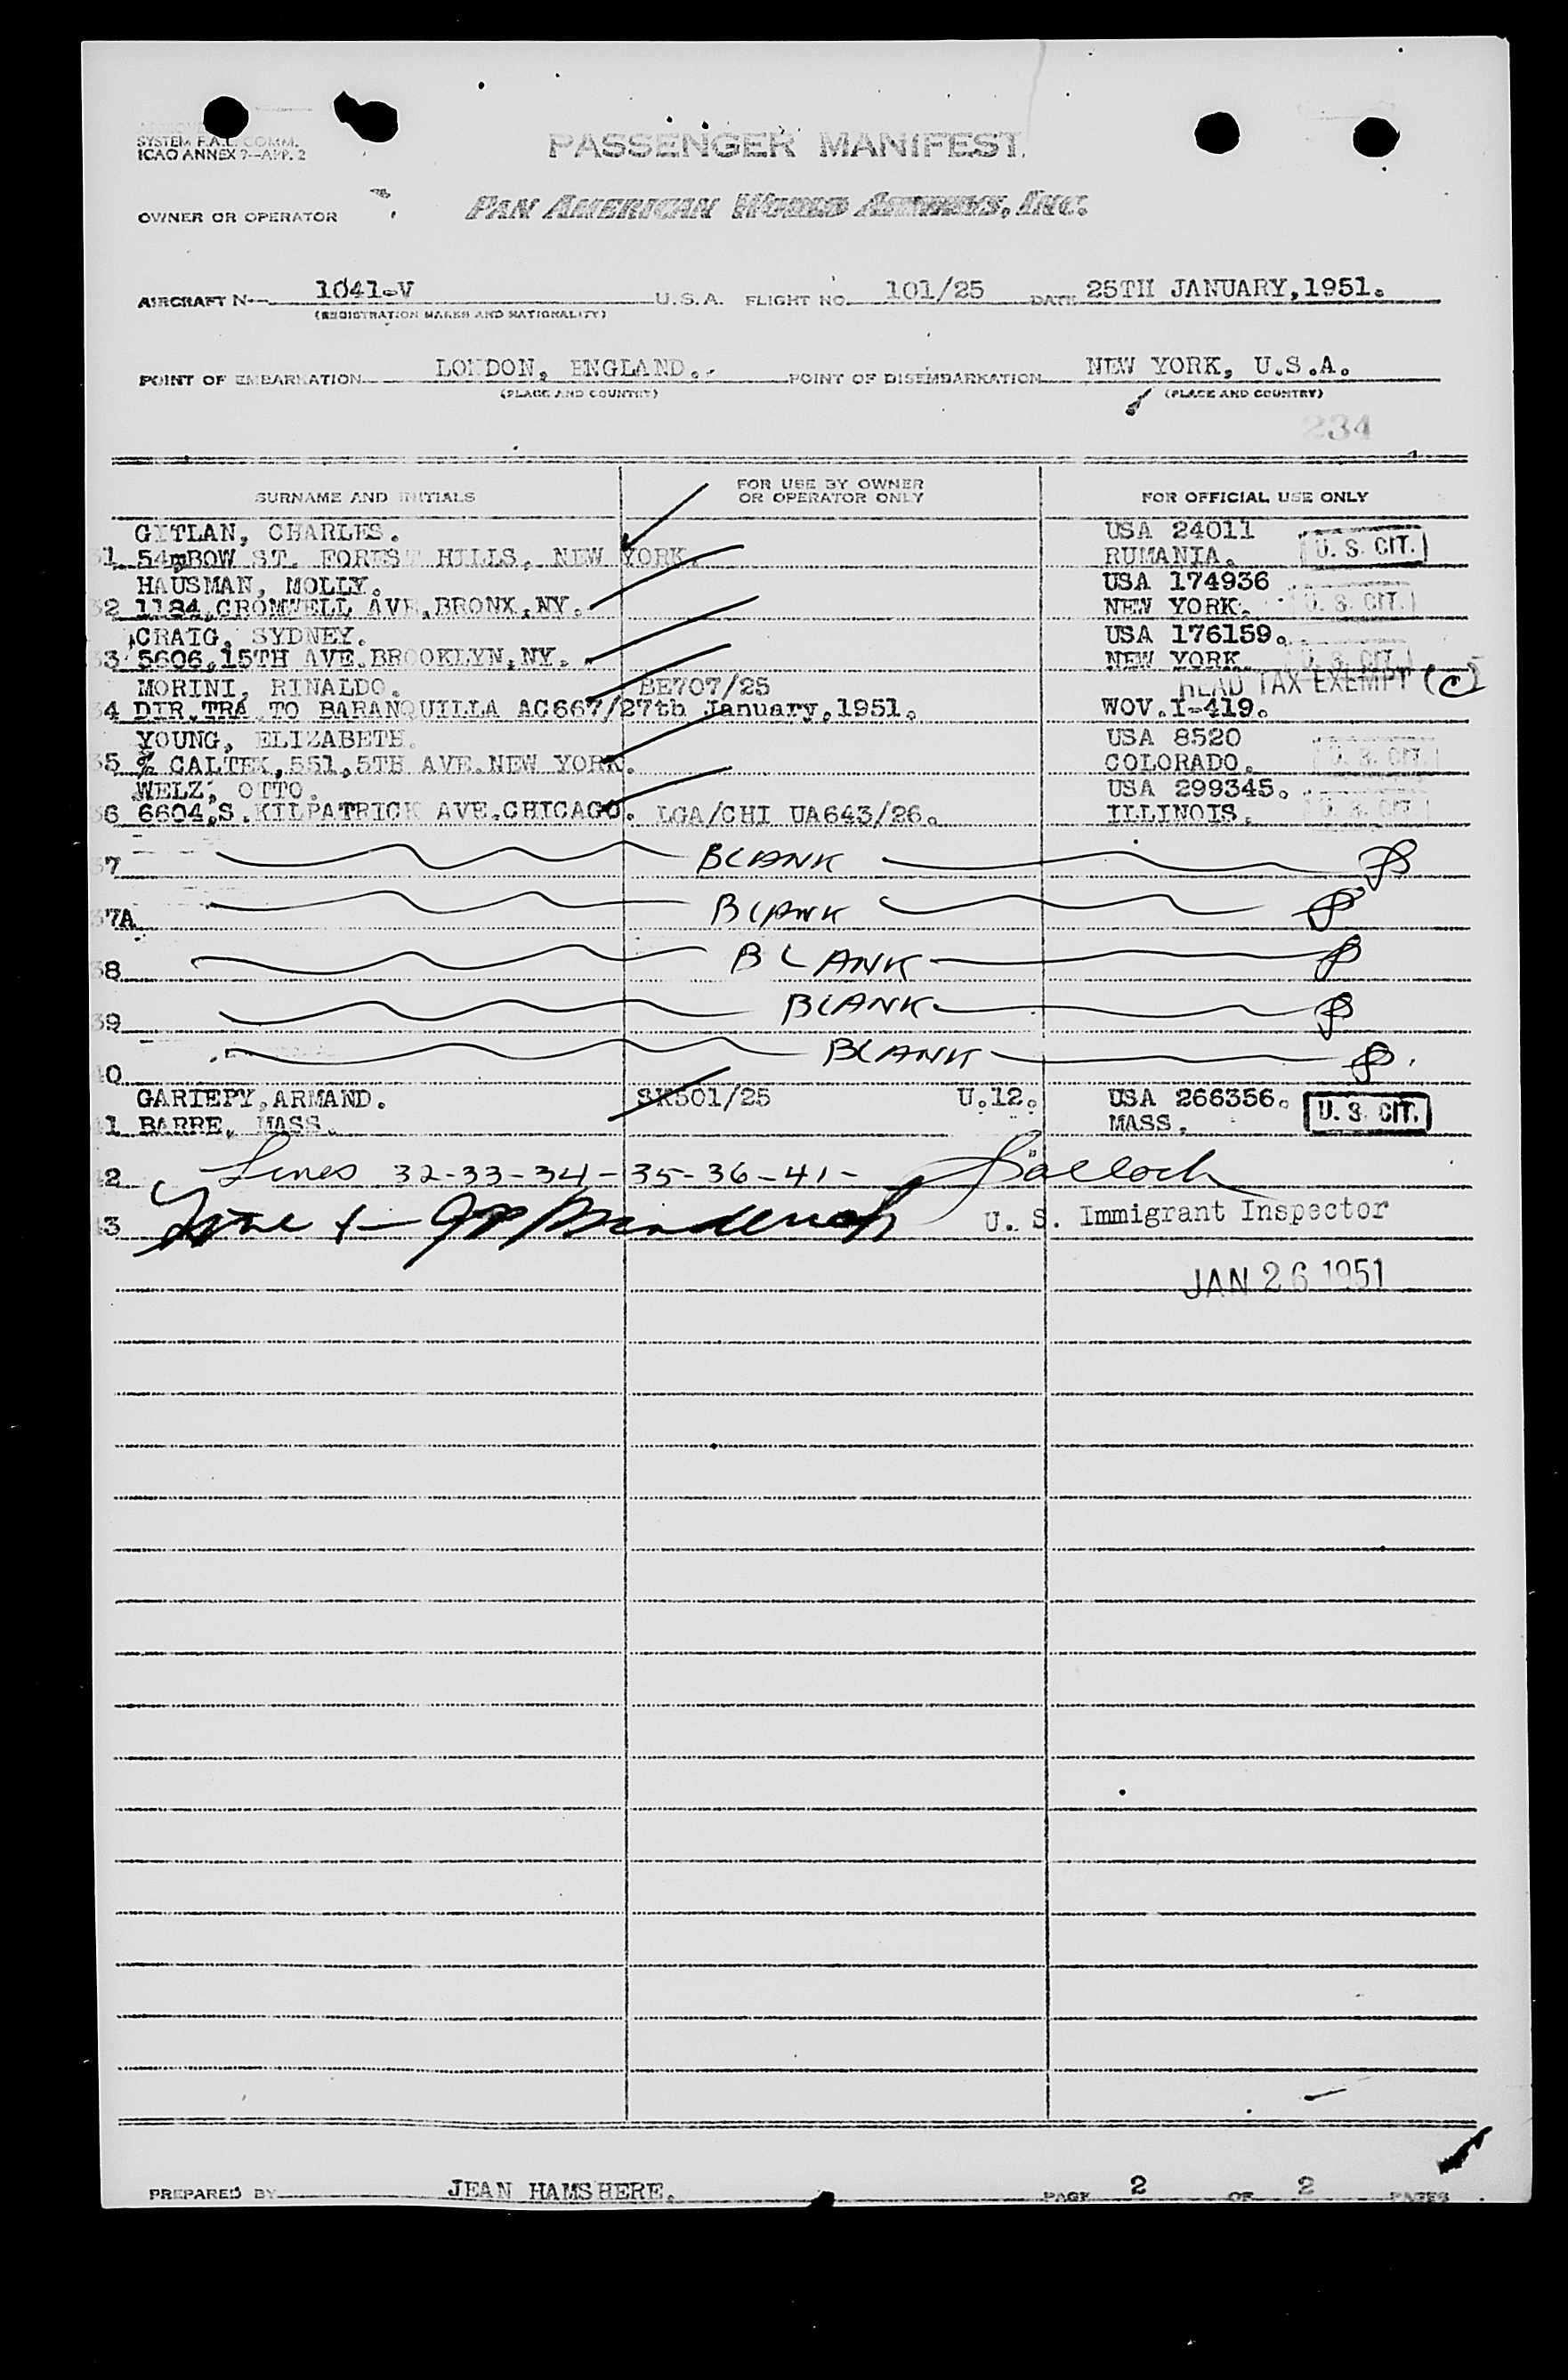 SYSTEM F.A.L. COMM.
ICAO ANNEX 9—APP. 2
PASSENGER MANIFEST
OWNER OR OPERATOR PAN AMERICAN WORLD AIRWAYS, INC.
AIRCRAFT N— 1041-V U.S.A. FLIGHT NO. 101/25 DATE 25TH JANUARY,1951.
(REGISTRATION MARKS AND NATIONALITY)
POINT OF EMBARKATION LONDON, ENGLAND. POINT OF DISEMBARKATION NEW YORK, U.S.A.
(PLACE AND COUNTRY) (PLACE AND COUNTRY)
234
SURNAME AND INITIALS FOR USE BY OWNER OR OPERATOR ONLY FOR OFFICIAL USE ONLY
GITLAN, CHARLES. USA 24011
31 BOW ST. FOREST HILLS, NEW YORK. RUMANIA. U. S. CIT.
HAUSMAN, MOLLY. USA 174936
32 1184,CROMWELL AVE,BRONX,NY. NEW YORK. U. S. CIT.
CRAIG, SYDNEY. USA 176159.
33 5606,15TH AVE.BROOKLYN,NY. NEW YORK. U. S. CIT.
MORINI, RINALDO. BE707/25 HEAD TAX EXEMPT (C)
34 DIR.TRA TO BARANQUILLA AC667/27th January,1951. WOV.I-419.
YOUNG, ELIZABETH. USA 8520
35 % CALTEX,551,5TH AVE.NEW YORK. COLORADO. U. S. CIT.
WELZ, OTTO. USA 299345.
36 6604,S.KILPATRICK AVE.CHICAGO. LGA/CHI UA643/26. ILLINOIS. U. S. CIT.
37 BLANK
37A BLANK
38 BLANK
39 BLANK
40 BLANK
GARIEPY,ARMAND. SK501/25 U.12. USA 266356.
41 BARRE, MASS. MASS. U. S. CIT.
42 Lines 32-33-34-35-36-41-
43 U. S. Immigrant Inspector
JAN 26 1951
PREPARED BY JEAN HAMSHERE. PAGE 2 OF 2 PAGES